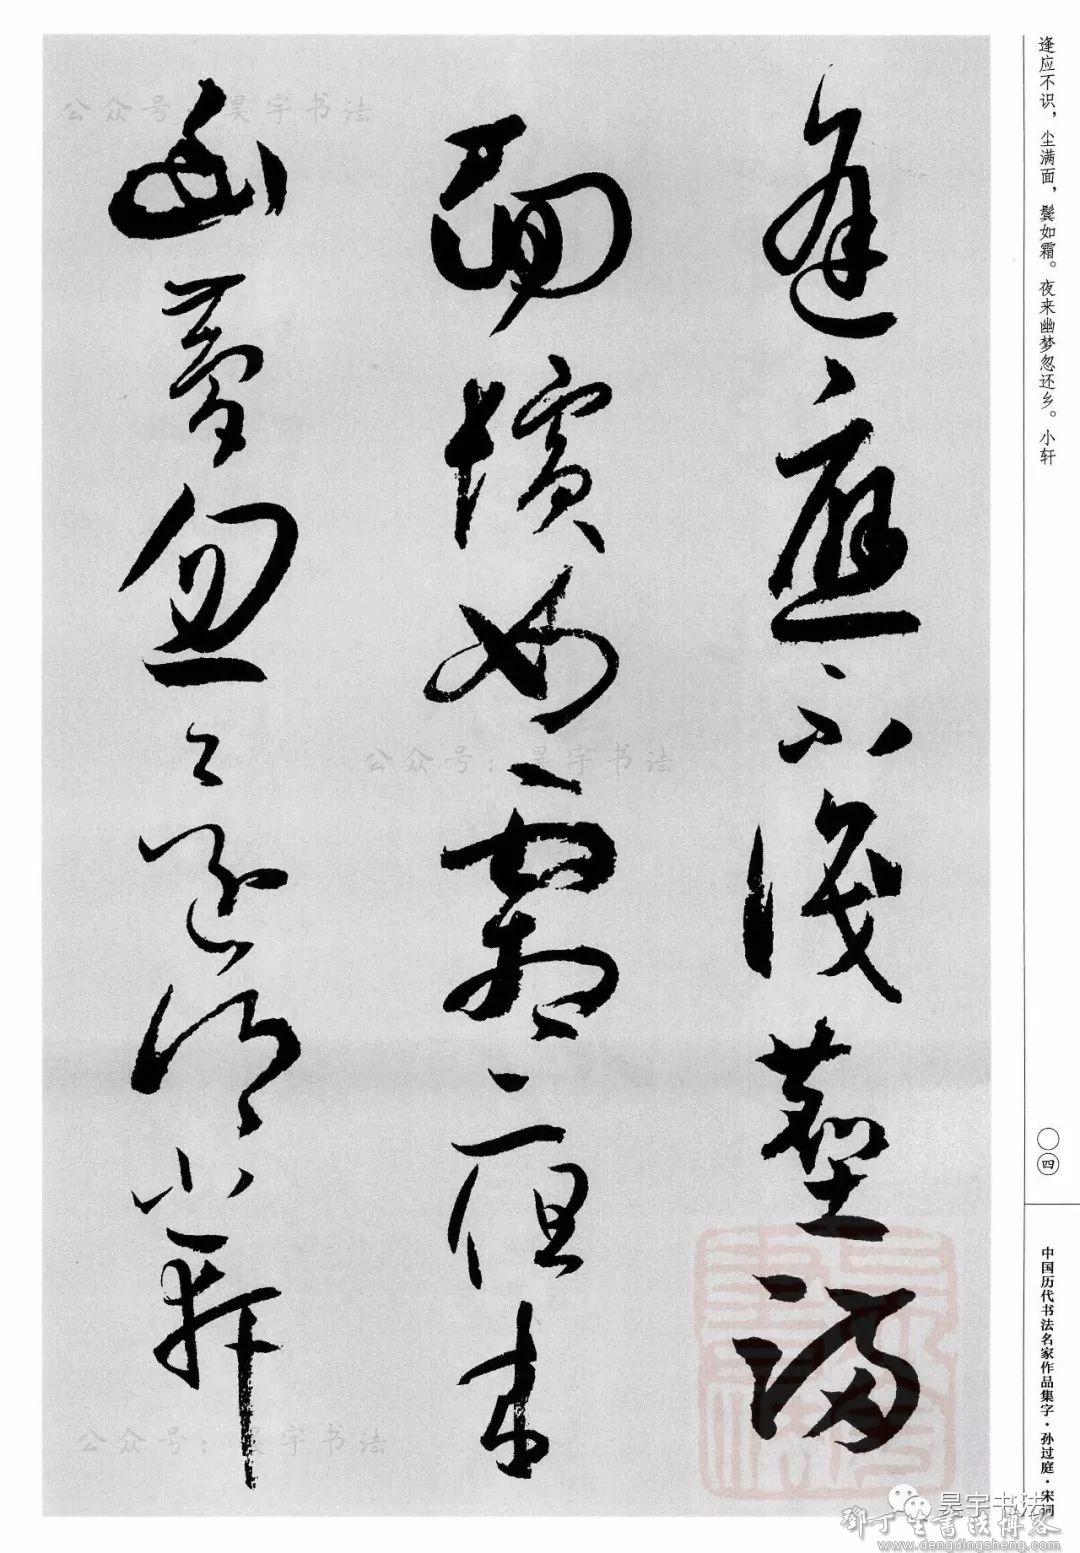 逢應不識塵滿
面鬢如霜夜来
幽夢忽還鄉小軒
逢应不识，尘满面，鬓如霜。夜来幽梦忽还乡。小轩
〇四
中国历代书法名家作品集字·孙过庭·宋词
公众号：昊宇书法
公众号：昊宇书法
公众号：昊宇书法
昊宇书法
鄧丁生書法博客
www.dengdingsheng.com